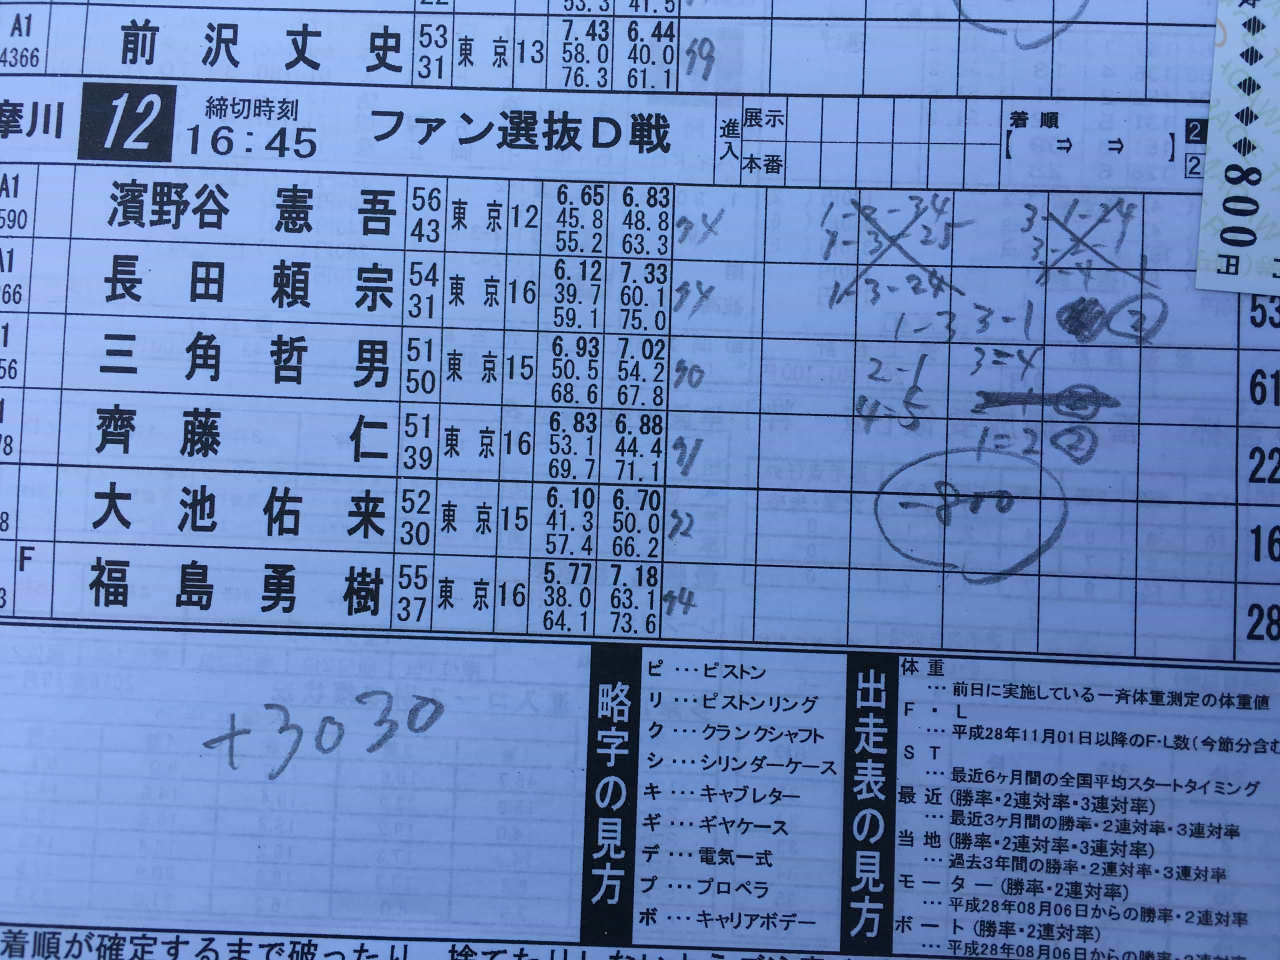 22 53.3 41.5
A1 4366 前沢丈史 53 31 東京 13 7.43 58.0 76.3 6.44 40.0 61.1 59
摩川 12 締切時刻 16:45 ファン選抜D戦 進入 展示 本番 着順 【 ⇒ ⇒ 】 2 2
800円
A1 590 濱野谷憲吾 56 43 東京 12 6.65 45.8 55.2 6.83 48.8 63.3
A1 266 長田頼宗 54 31 東京 16 6.12 39.7 59.1 7.33 60.1 75.0
53
1 56 三角哲男 51 50 東京 15 6.93 50.5 68.6 7.02 54.2 67.8
61
1 78 齊藤仁 51 39 東京 16 6.83 53.1 69.7 6.88 44.4 71.1
22
8 大池佑来 52 30 東京 15 6.10 41.3 57.4 6.70 50.0 66.2
16
3 F 福島勇樹 55 37 東京 16 5.77 38.0 64.1 7.18 63.1 73.6
28
1-3-24
1-3 3-1 ②
2-1 3=4
4=5
1=2 ②
-800
+3030
略字の見方
ピ…ピストン
リ…ピストンリング
ク…クランクシャフト
シ…シリンダーケース
キ…キャブレター
ギ…ギヤケース
デ…電気一式
プ…プロペラ
ボ…キャリアボデー
出走表の見方
体重
…前日に実施している一斉体重測定の体重値
F・L
…平成28年11月01日以降のF・L数(今節分含む
ST
…最近6ヶ月間の全国平均スタートタイミング
最近(勝率・2連対率・3連対率)
…最近3ヶ月間の勝率・2連対率・3連対率
当地(勝率・2連対率・3連対率)
…過去3年間の勝率・2連対率・3連対率
モーター(勝率・2連対率)
…平成28年08月06日からの勝率・2連対率
ボート(勝率・2連対率)
…平成28年08月06日からの勝率・2連対率
着順が確定するまで破ったり、捨てたりしないようご注意